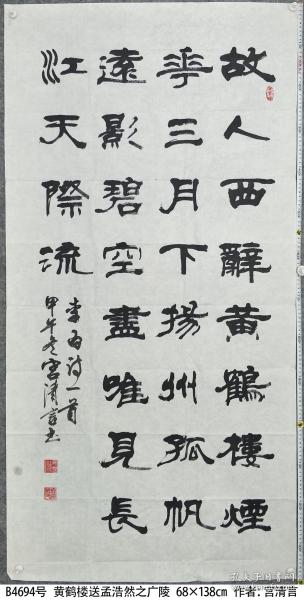 故人西辭黃鶴樓煙
華三月下揚州孤帆
遠影碧空盡唯見長
江天際流
李白詩一首
甲午冬宮清言書
B4694号 黄鹤楼送孟浩然之广陵 68×138cm 作者:宫清言